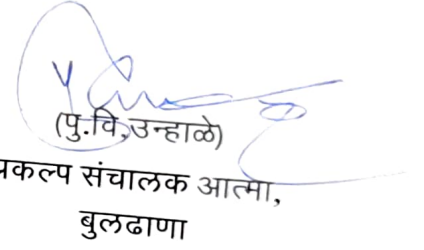 (पु.वि,उन्हाळे)
प्रकल्प संचालक आत्मा,
बुलढाणा